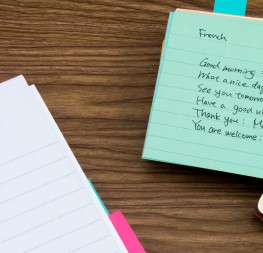 French
Good morning :
What a nice day
See you tomorro
Have a good
Thank you :
You are welcome :